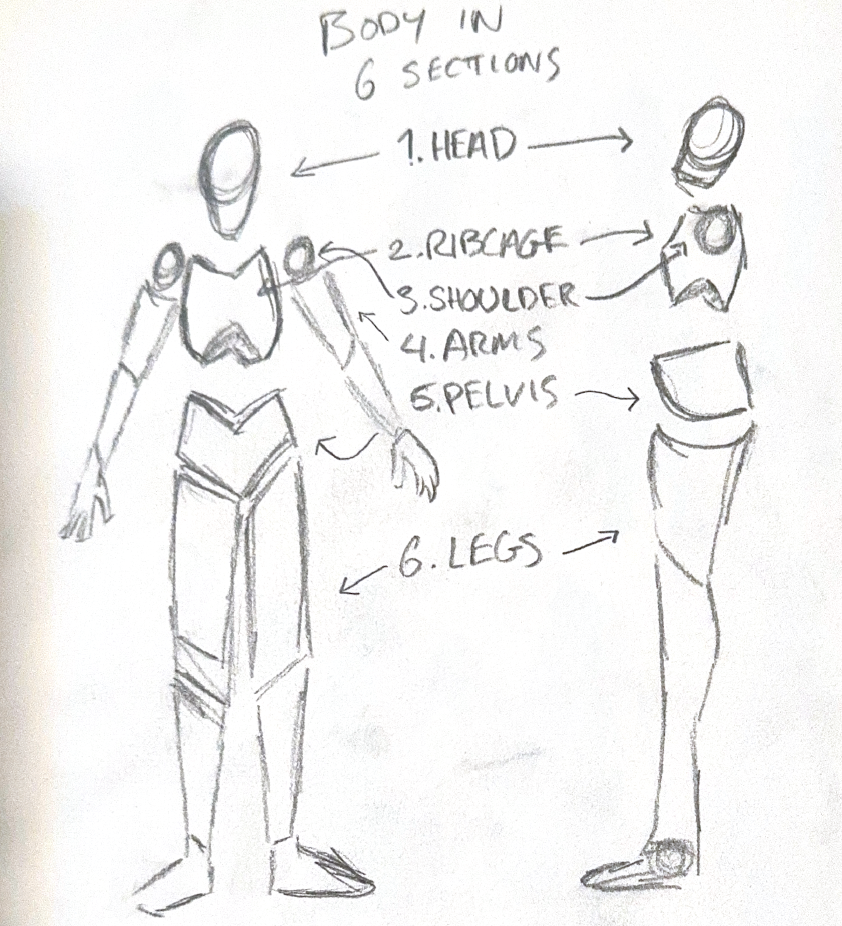 BODY IN
6 SECTIONS
1. HEAD
2. RIBCAGE
3. SHOULDER
4. ARMS
5. PELVIS
6. LEGS